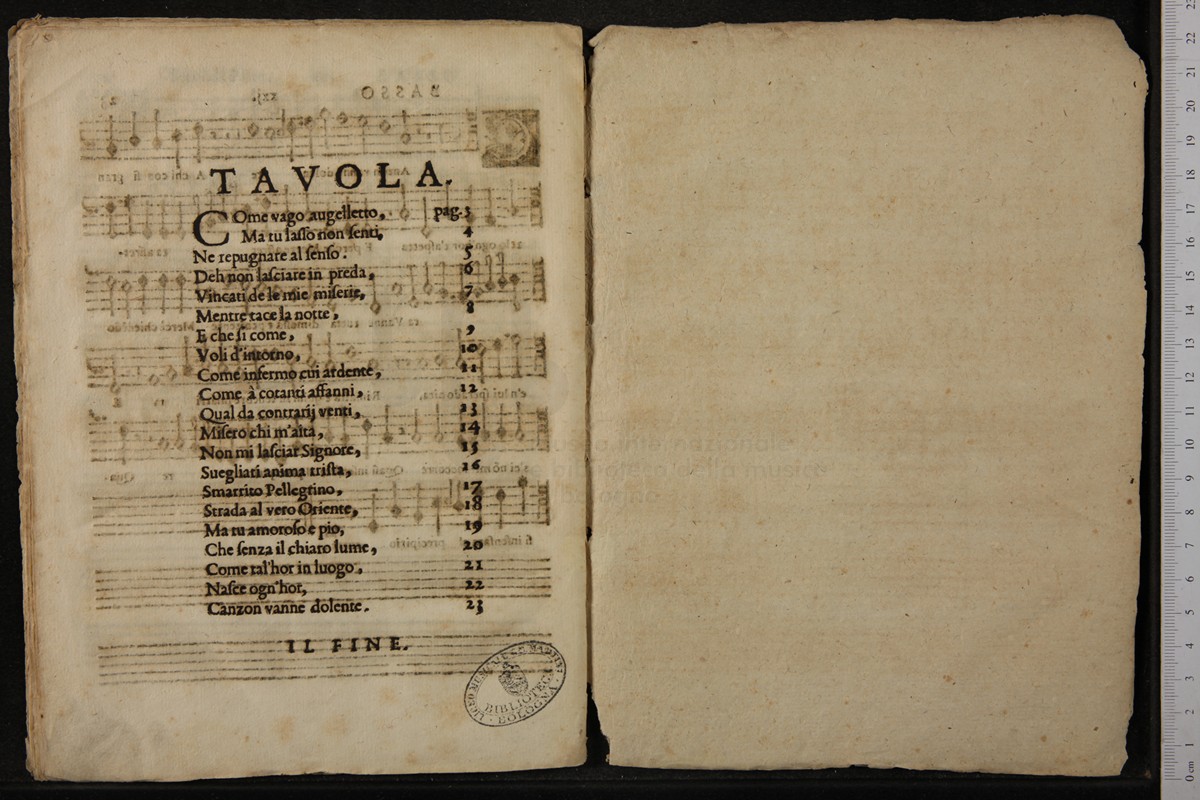 TAVOLA.
COme vago augelletto, pag. 3
Ma tu lasso non senti, 4
Ne repugnare al senso. 5
Deh non lasciare in preda, 6
Vincati de le mie miserie, 7
Mentre tace la notte, 8
E che si come, 9
Voli d'intorno, 10
Come infermo cui ardente, 11
Come à cotanti affanni, 12
Qual da contrarij venti, 13
Misero chi m'aita, 14
Non mi lasciar Signore, 15
Suegliati anima trista, 16
Smarrito Pellegrino, 17
Strada al vero Oriente, 18
Ma tu amoroso e pio, 19
Che senza il chiaro lume, 20
Come tal'hor in luogo, 21
Nasce ogn'hor, 22
Canzon vanne dolente. 23
IL FINE.
LICEO MUSICALE MARTINI
BIBLIOTECA
BOLOGNA